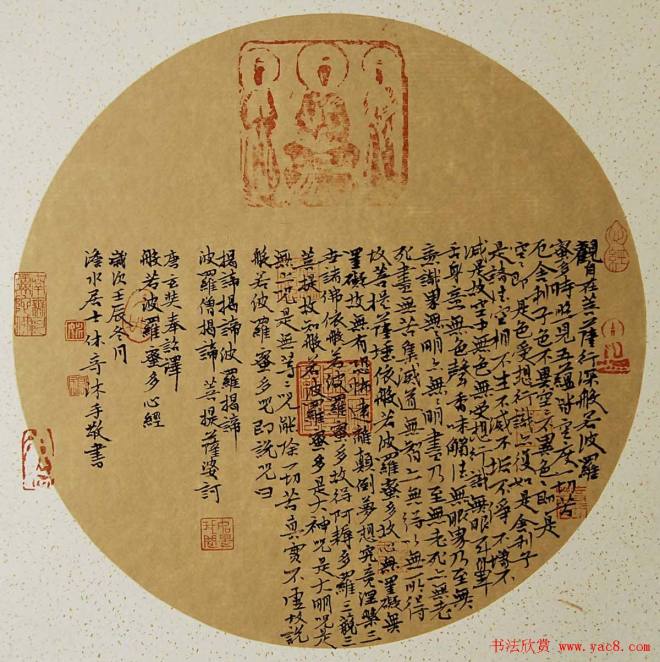 觀自在菩薩行深般若波羅
蜜多時照見五蘊皆空度一切苦
厄舍利子色不異空〻不異色〻即是
空〻即是色受想行識亦復如是舍利子
是諸法空相不生不滅不垢不淨不增不
減是故空中無色無受想行識無眼耳鼻
舌身意無色聲香味觸法無眼界乃至無
意識界無〻明亦無〻明盡乃至無老死亦無老
死盡無苦集滅道無智亦無得以無所得
故菩提薩埵依般若波羅蜜多故心無罣礙無
罣礙故無有恐怖遠離顛倒夢想究竟涅槃三
世諸佛依般若波羅蜜多故得阿耨多羅三藐三
菩提故知般若波羅蜜多是大神咒是大明咒是
無上咒是無等〻咒能除一切苦真實不虛故說
般若波羅蜜多咒即說咒曰
揭諦揭諦波羅揭諦
波羅僧揭諦 菩提薩婆訶
唐玄奘奉詔譯
般若波羅蜜多心經
歲次壬辰冬月
居士休亭沐手敬書
书法欣赏 www.yac8.com